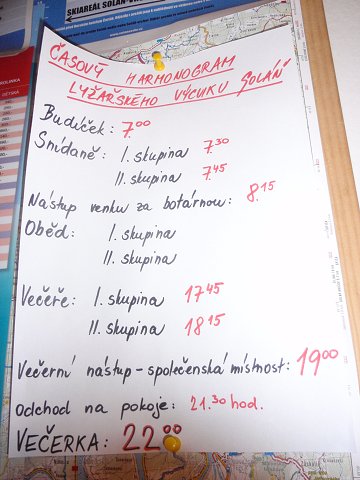 SKIAREÁL SOLÁŇ
ČASOVÝ HARMONOGRAM
LYŽAŘSKÉHO VÝCVIKU SOLÁŇ
Budíček: 7.00
Snídaně: I. skupina 7.30
II. skupina 7.45
Nástup venku za botárnou: 8.15
Oběd: I. skupina
II. skupina
Večeře: I. skupina 17.45
II. skupina 18.15
Večerní nástup - společenská místnost: 19.00
odchod na pokoje: 21.30 hod.
VEČERKA: 22.00